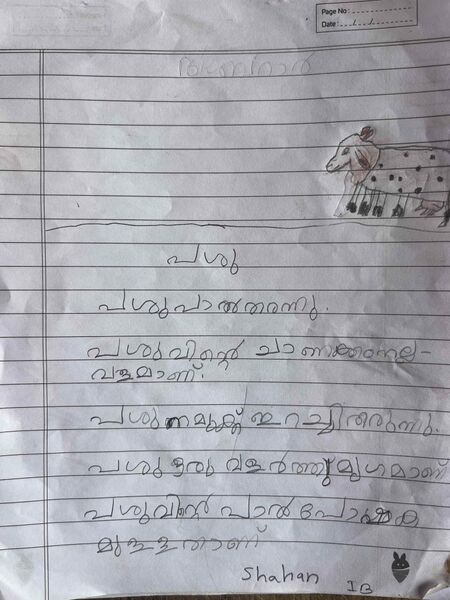 Page No:
Date: / /
പശു
പശുപാൽതരുന്നു.
പശുവിന്റെ ചാണകംനല്ല-
വളമാണ്.
പശു നമുക്ക് ഇറച്ചിതരുന്നു.
പശു ഒരു വളർത്തുമൃഗമാണ്
പശുവിന്റെ പാൽ പോഷക
മുള്ളതാണ്
Shahan IB